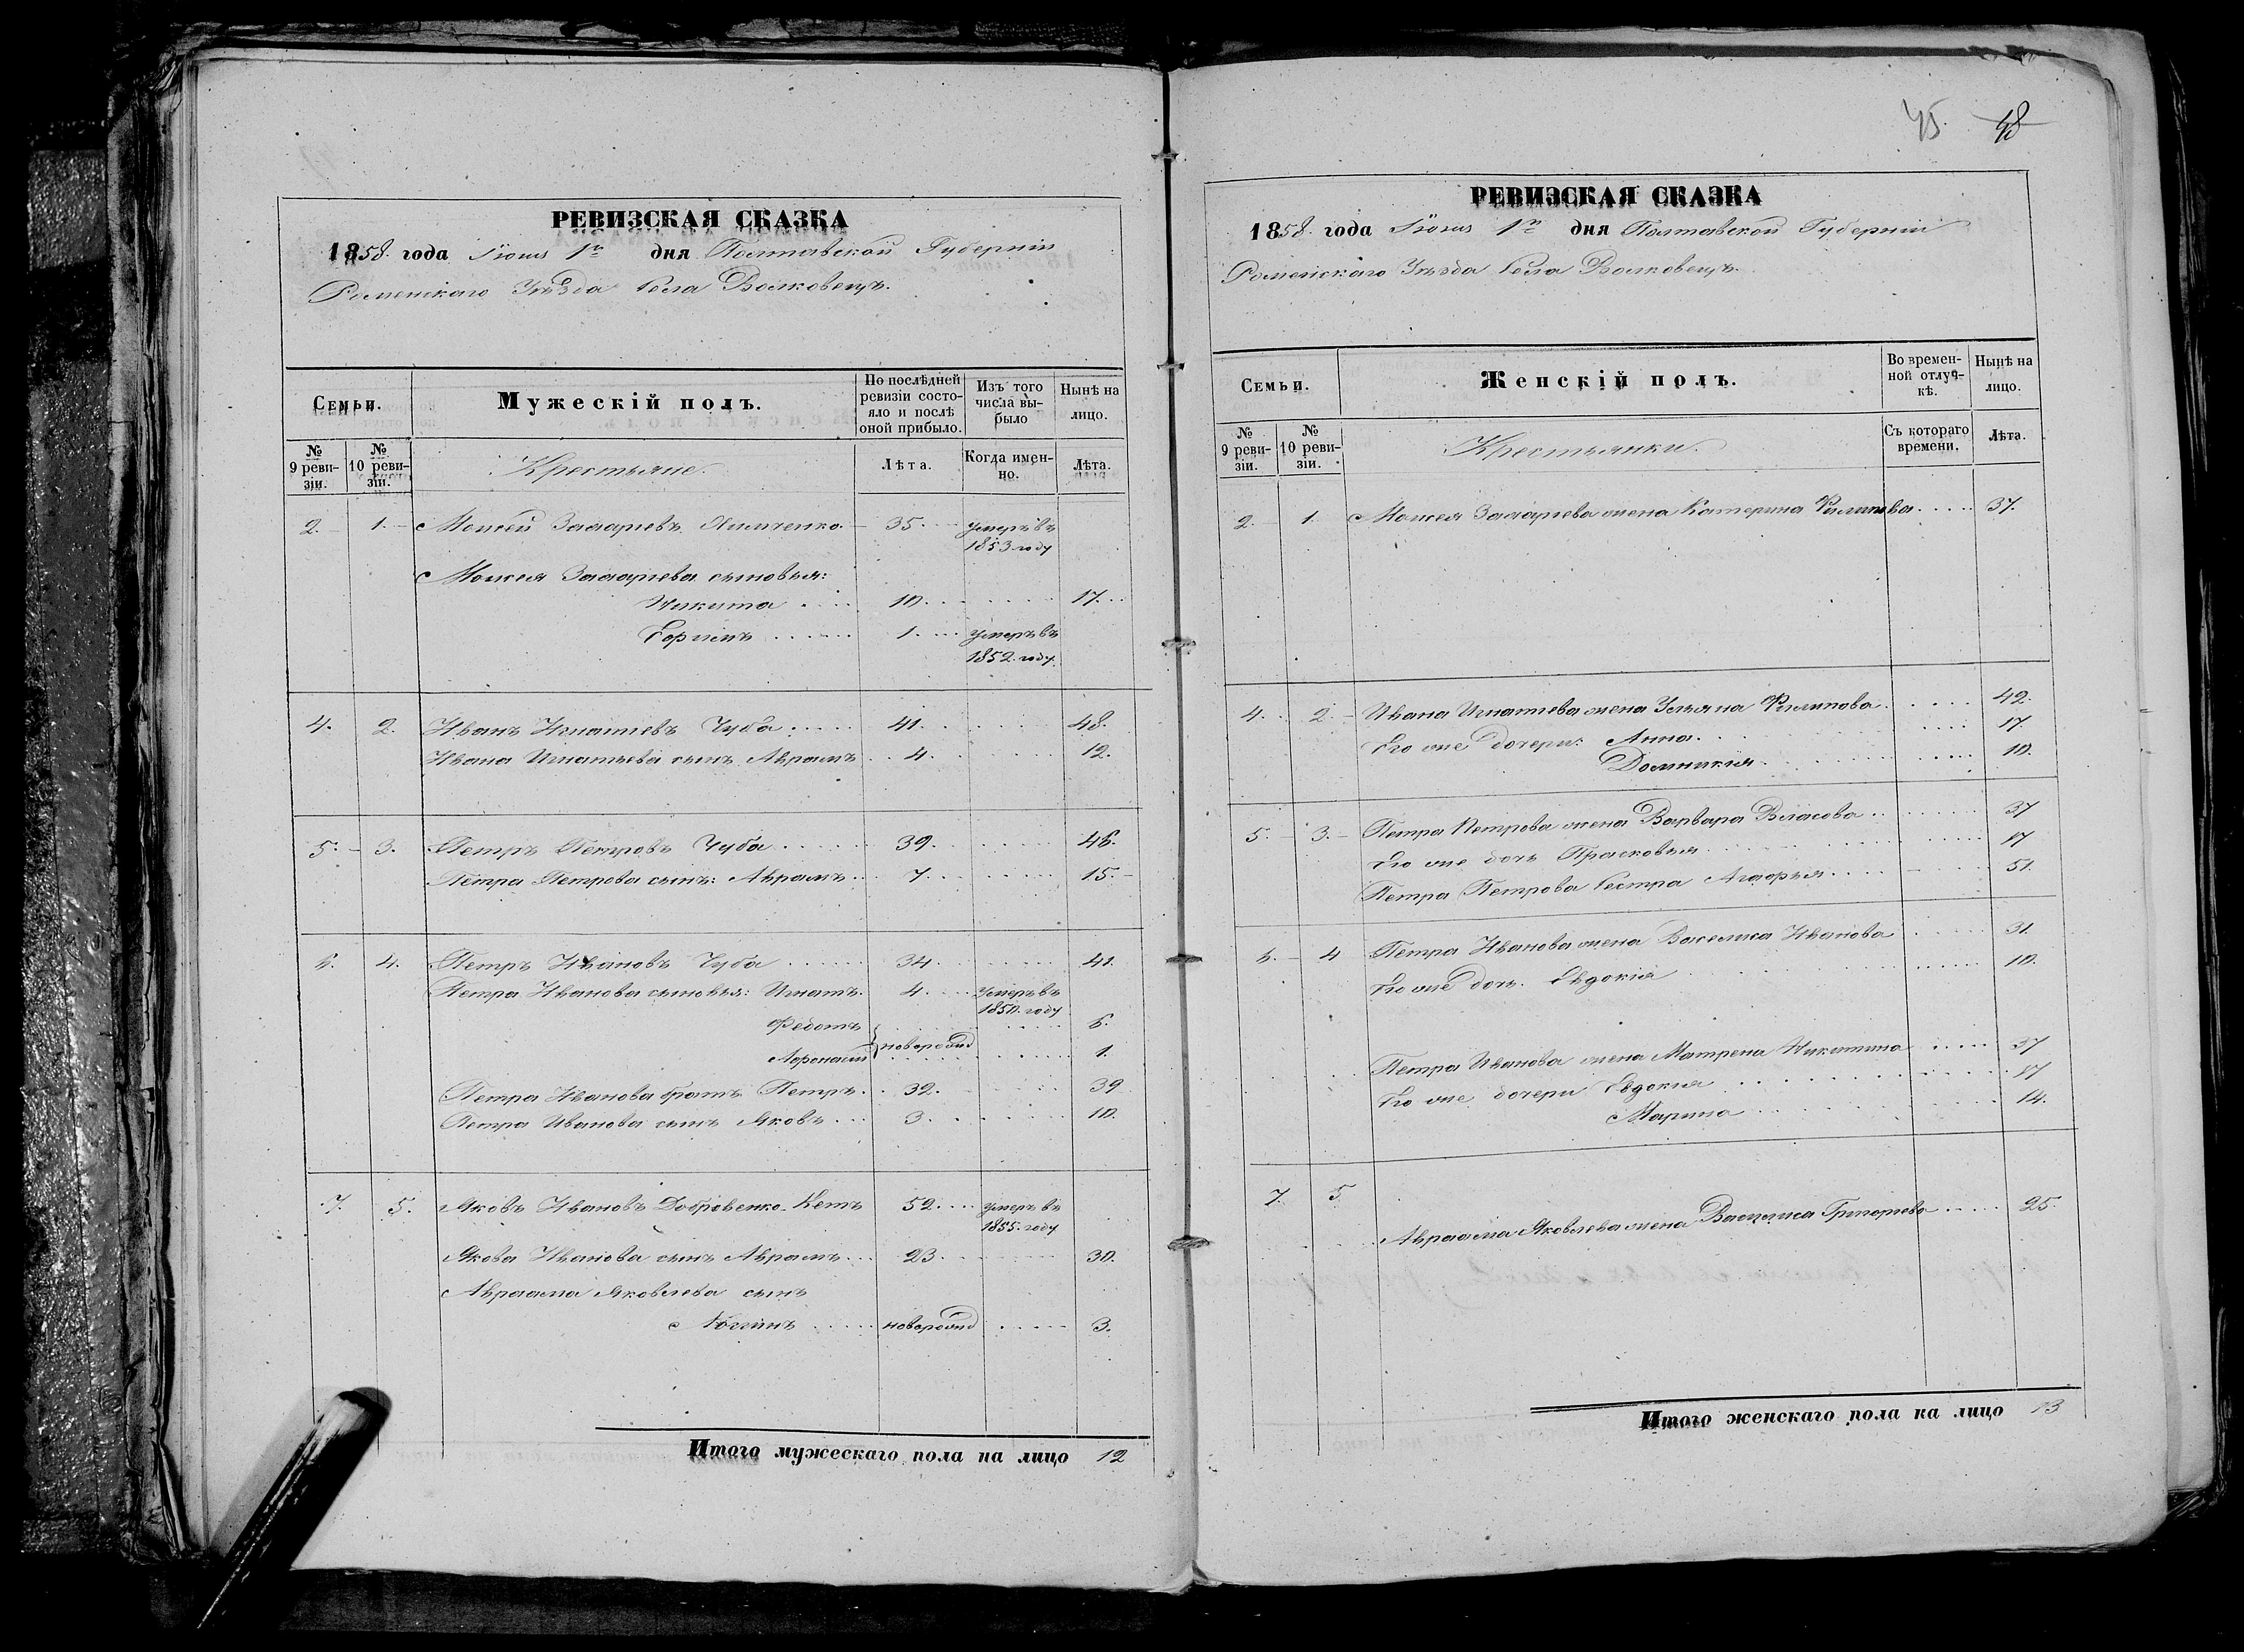 РЕВИЗСКАЯ СКАЗКА
1858. года Іюня 1го дня Полтавской Губерніи
Роменскаго Уѣзда Села Волковецъ.
Семьи.
Мужескій полъ.
По послѣдней ревизіи состояло и послѣ оной прибыло.
Изъ того числа выбыло
Нынѣ на лицо.
№ 9 ревизіи.
№ 10 ревизіи.
Крестьяне.
Лѣта.
Когда именно.
Лѣта.
2. 1. Моисей Захаріевъ 35. умеръ въ
1853 году
Моисея Захаріева сыновья:
Никита 10. 17.
Ефимъ 1. умеръ въ
1852. году.
4. 2. Иванъ Игнатіевъ Чуба 41. 48.
Ивана Игнатьева сынъ Аврамъ 4. 12.
5. 3. Петръ Петровъ Чуба 39. 46.
Петра Петрова сынъ: Аврамъ 7. 15.
6. 4. Петръ Ивановъ Чуба 34. 41.
Петра Иванова сыновья: Игнатъ. 4. умеръ въ
1850. году
Федотъ 6.
Афонасій новорожд 1.
Петра Иванова братъ Петръ. 32. 39
Петра Иванова сынъ Яковъ 3. 10.
7. 5. Яковъ Ивановъ Добровенко-Кетъ 52. умеръ въ
1855. году
Якова Иванова сынъ Аврамъ 23. 30.
Авраама Яковлева сынъ
новорожд 3.
Итого мужескаго пола на лицо 12
45. 48
РЕВИЗСКАЯ СКАЗКА
1858. года Іюня 1го дня Полтавской Губерніи
Роменскаго Уѣзда Села Волковецъ.
Семьи.
Женскій полъ.
Во временной отлучкѣ.
Нынѣ на лицо.
№ 9 ревизіи.
№ 10 ревизіи.
Крестьянки.
Съ котораго времени.
Лѣта.
2. 1. Моисея Захаріева жена Катерина Филипова 37.
4. 2. Ивана Игнатіева жена Ульяна Филипова 42.
Его же дочери: Анна 17.
Домникія 10.
5. 3. Петра Петрова жена Варвара Власова 37
Его же дочь Прасковья 17
Петра Петрова Сестра Агафья 51.
6. 4 Петра Иванова жена Васелиса Иванова 31.
Его же дочь. Евдокія 10.
Петра Иванова жена Матрена Никитина 37
Его же дочери Евдокия 17
Марина 14.
7. 5
Авраама Яковлева жена Василиса Григорьева 25.
Итого женскаго пола на лицо 13